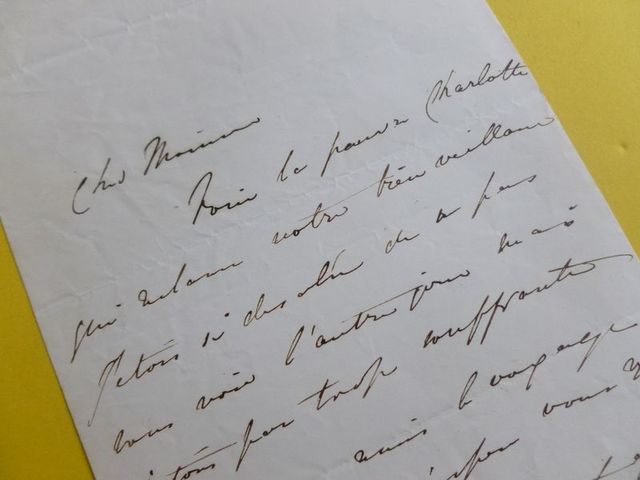 Cher Monsieur
Voici la pauvre Charlotte
qui réclame votre bienveillance
J'étais si désolée de ne pas
vous voir l'autre jour mais
j'étais par trop souffrante
mais le voyage
vous